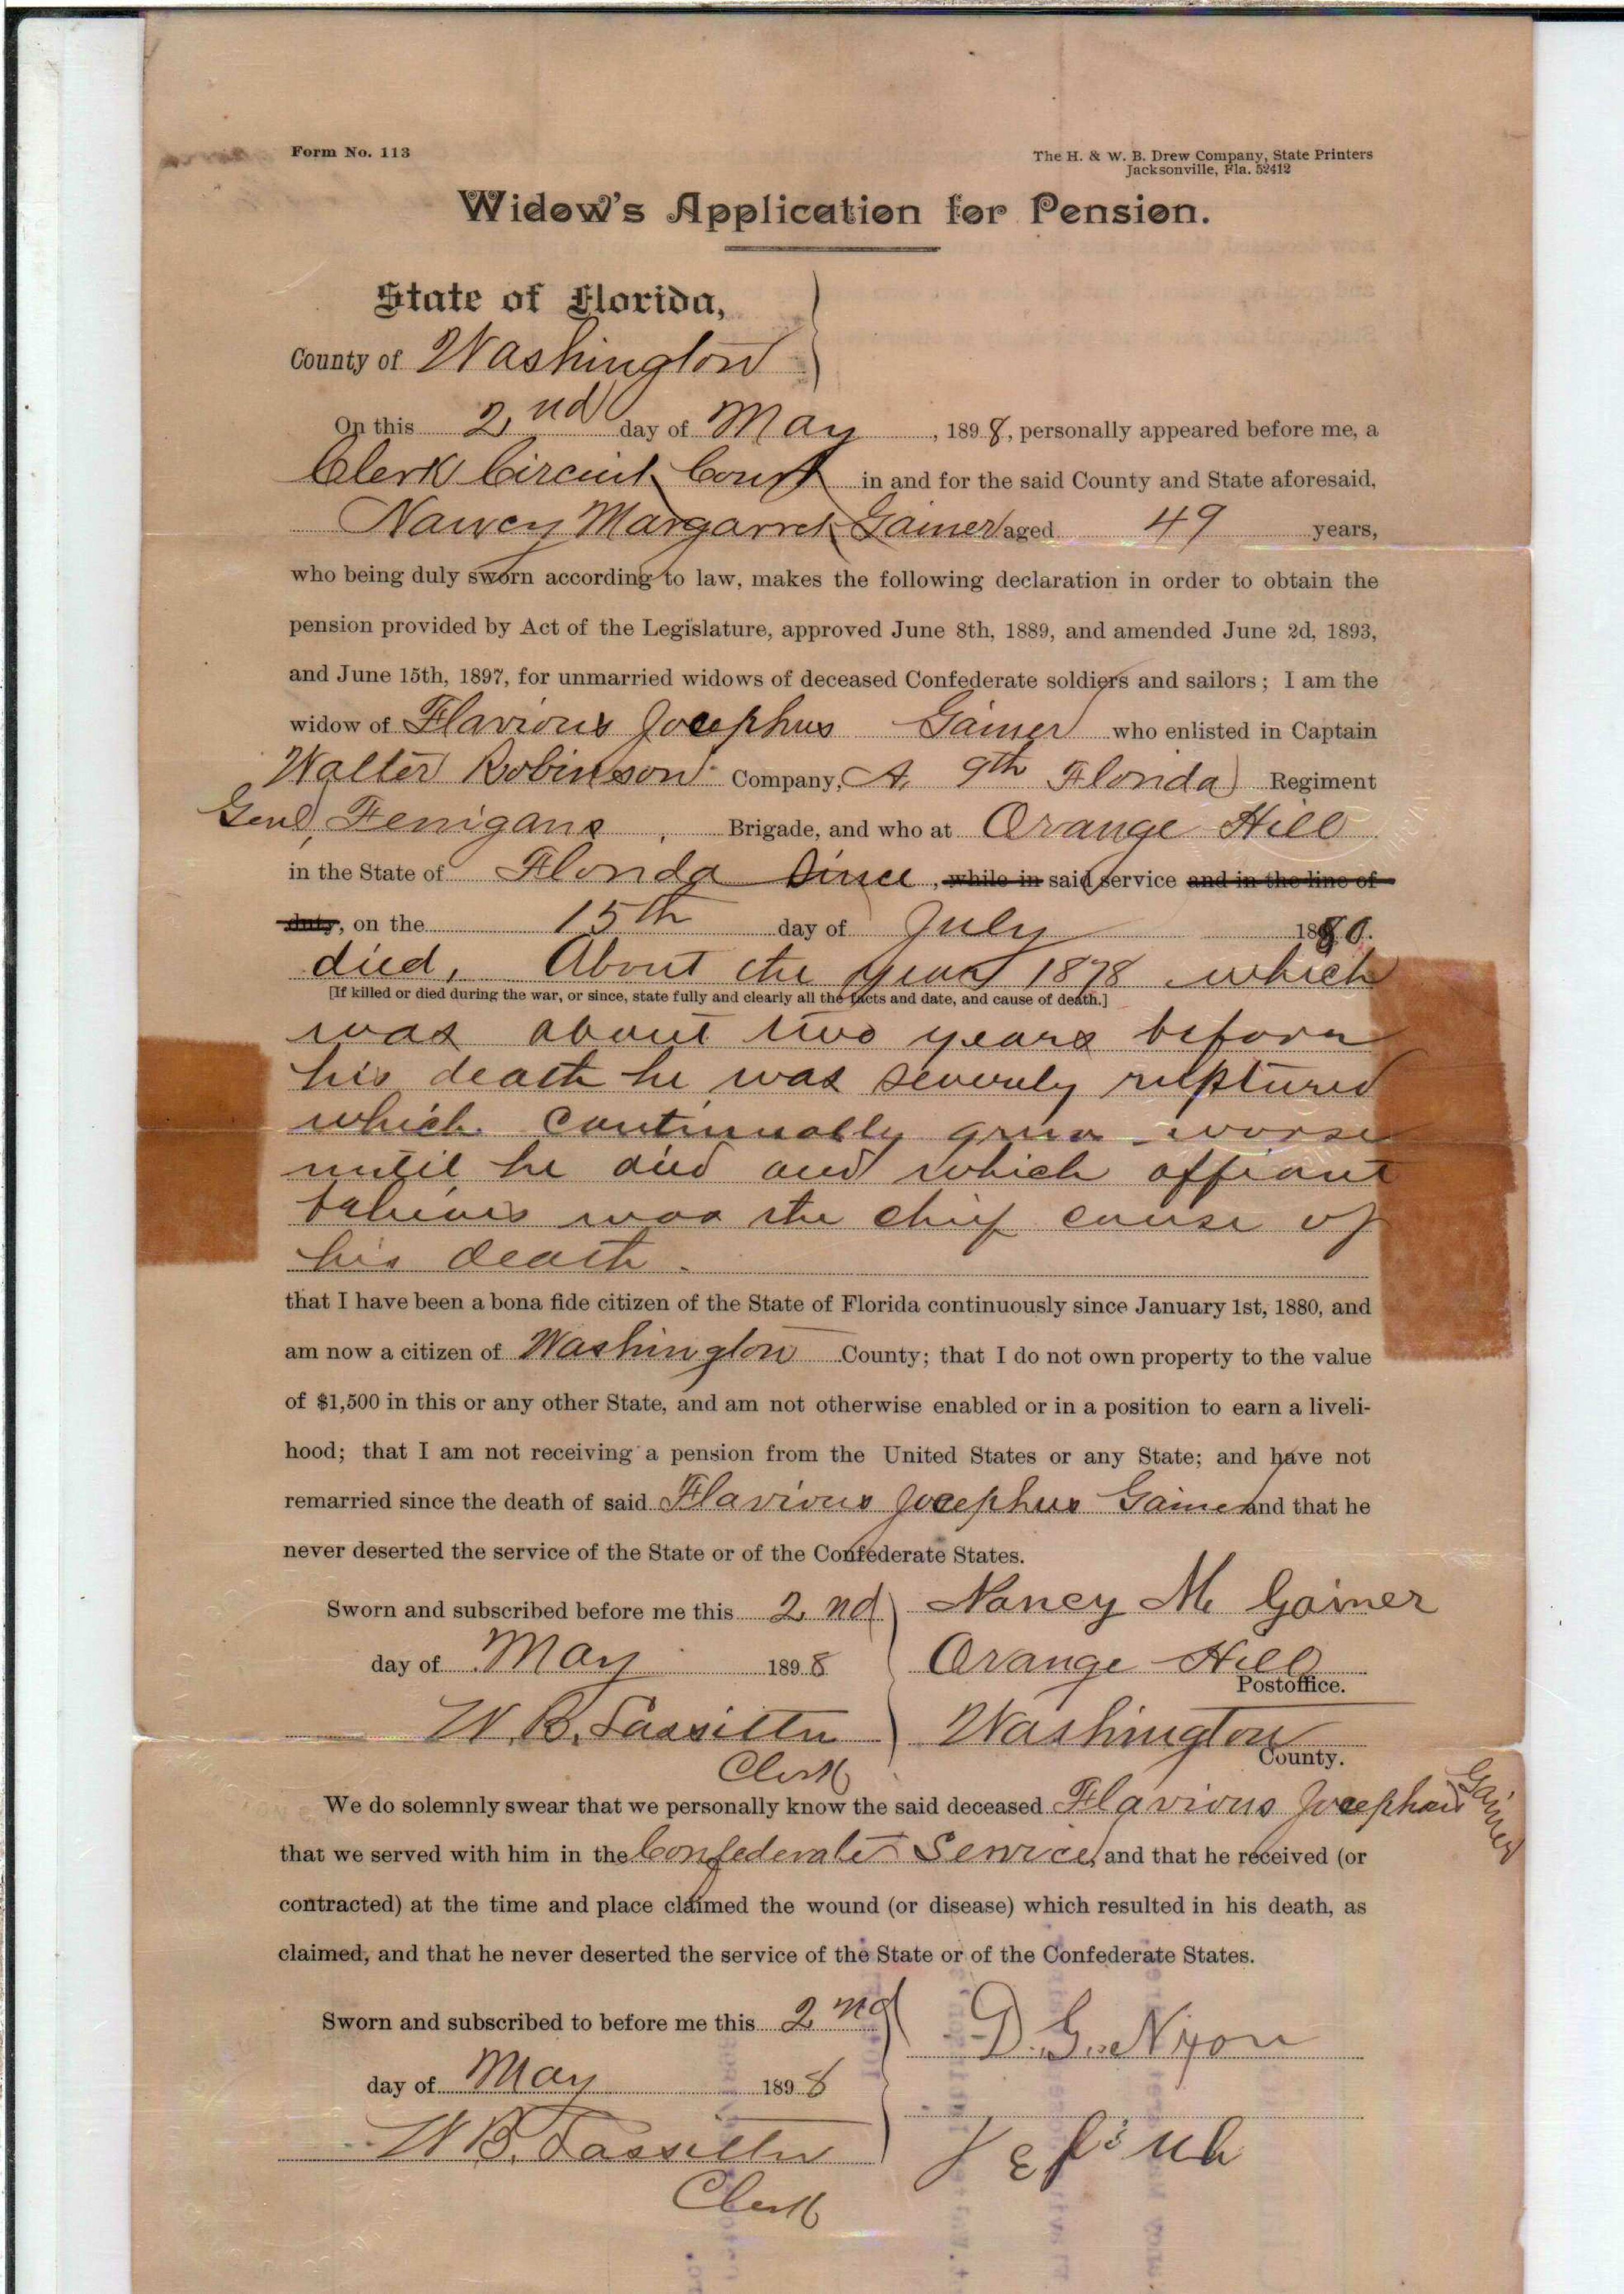 Form No. 113
The H. & W. B. Drew Company, State Printers
Jacksonville, Fla. 52412
Widow's Application for Pension.
State of Florida,
County of Washington
On this 2nd day of May, 1898, personally appeared before me, a
Clerk Circuit Court in and for the said County and State aforesaid,
Nancy Margarret Gainer aged 49 years,
who being duly sworn according to law, makes the following declaration in order to obtain the
pension provided by Act of the Legislature, approved June 8th, 1889, and amended June 2d, 1893,
and June 15th, 1897, for unmarried widows of deceased Confederate soldiers and sailors; I am the
widow of Flavious Jocephus Gainer who enlisted in Captain
Walter Robinson Company, A, 9th Florida Regiment
Genl, Fenigans, Brigade, and who at Orange Hill
in the State of Florida Since, while in said service and in the line of
duty, on the 15th day of July 1880.
died, About the year 1878 which
[If killed or died during the war, or since, state fully and clearly all the facts and date, and cause of death.]
was about two years before
his death he was severely ruptured
which continually grew worse
until he died and which affiant
believes was the chief cause of
his death.
that I have been a bona fide citizen of the State of Florida continuously since January 1st, 1880, and
am now a citizen of Washington County; that I do not own property to the value
of $1,500 in this or any other State, and am not otherwise enabled or in a position to earn a liveli-
hood; that I am not receiving a pension from the United States or any State; and have not
remarried since the death of said Flavious Jocephus Gainer and that he
never deserted the service of the State or of the Confederate States.
Sworn and subscribed before me this 2nd Nancy M Gainer
day of May 1898 Orange Hill
Postoffice.
W. B. Lassitter Washington
County.
Clerk
We do solemnly swear that we personally know the said deceased Flavious Jocephus Gainer
that we served with him in the Confederate Service, and that he received (or
contracted) at the time and place claimed the wound (or disease) which resulted in his death, as
claimed, and that he never deserted the service of the State or of the Confederate States.
Sworn and subscribed to before me this 2nd D. G. Nixon
day of May 1898
W B. Lassitter
Clerk